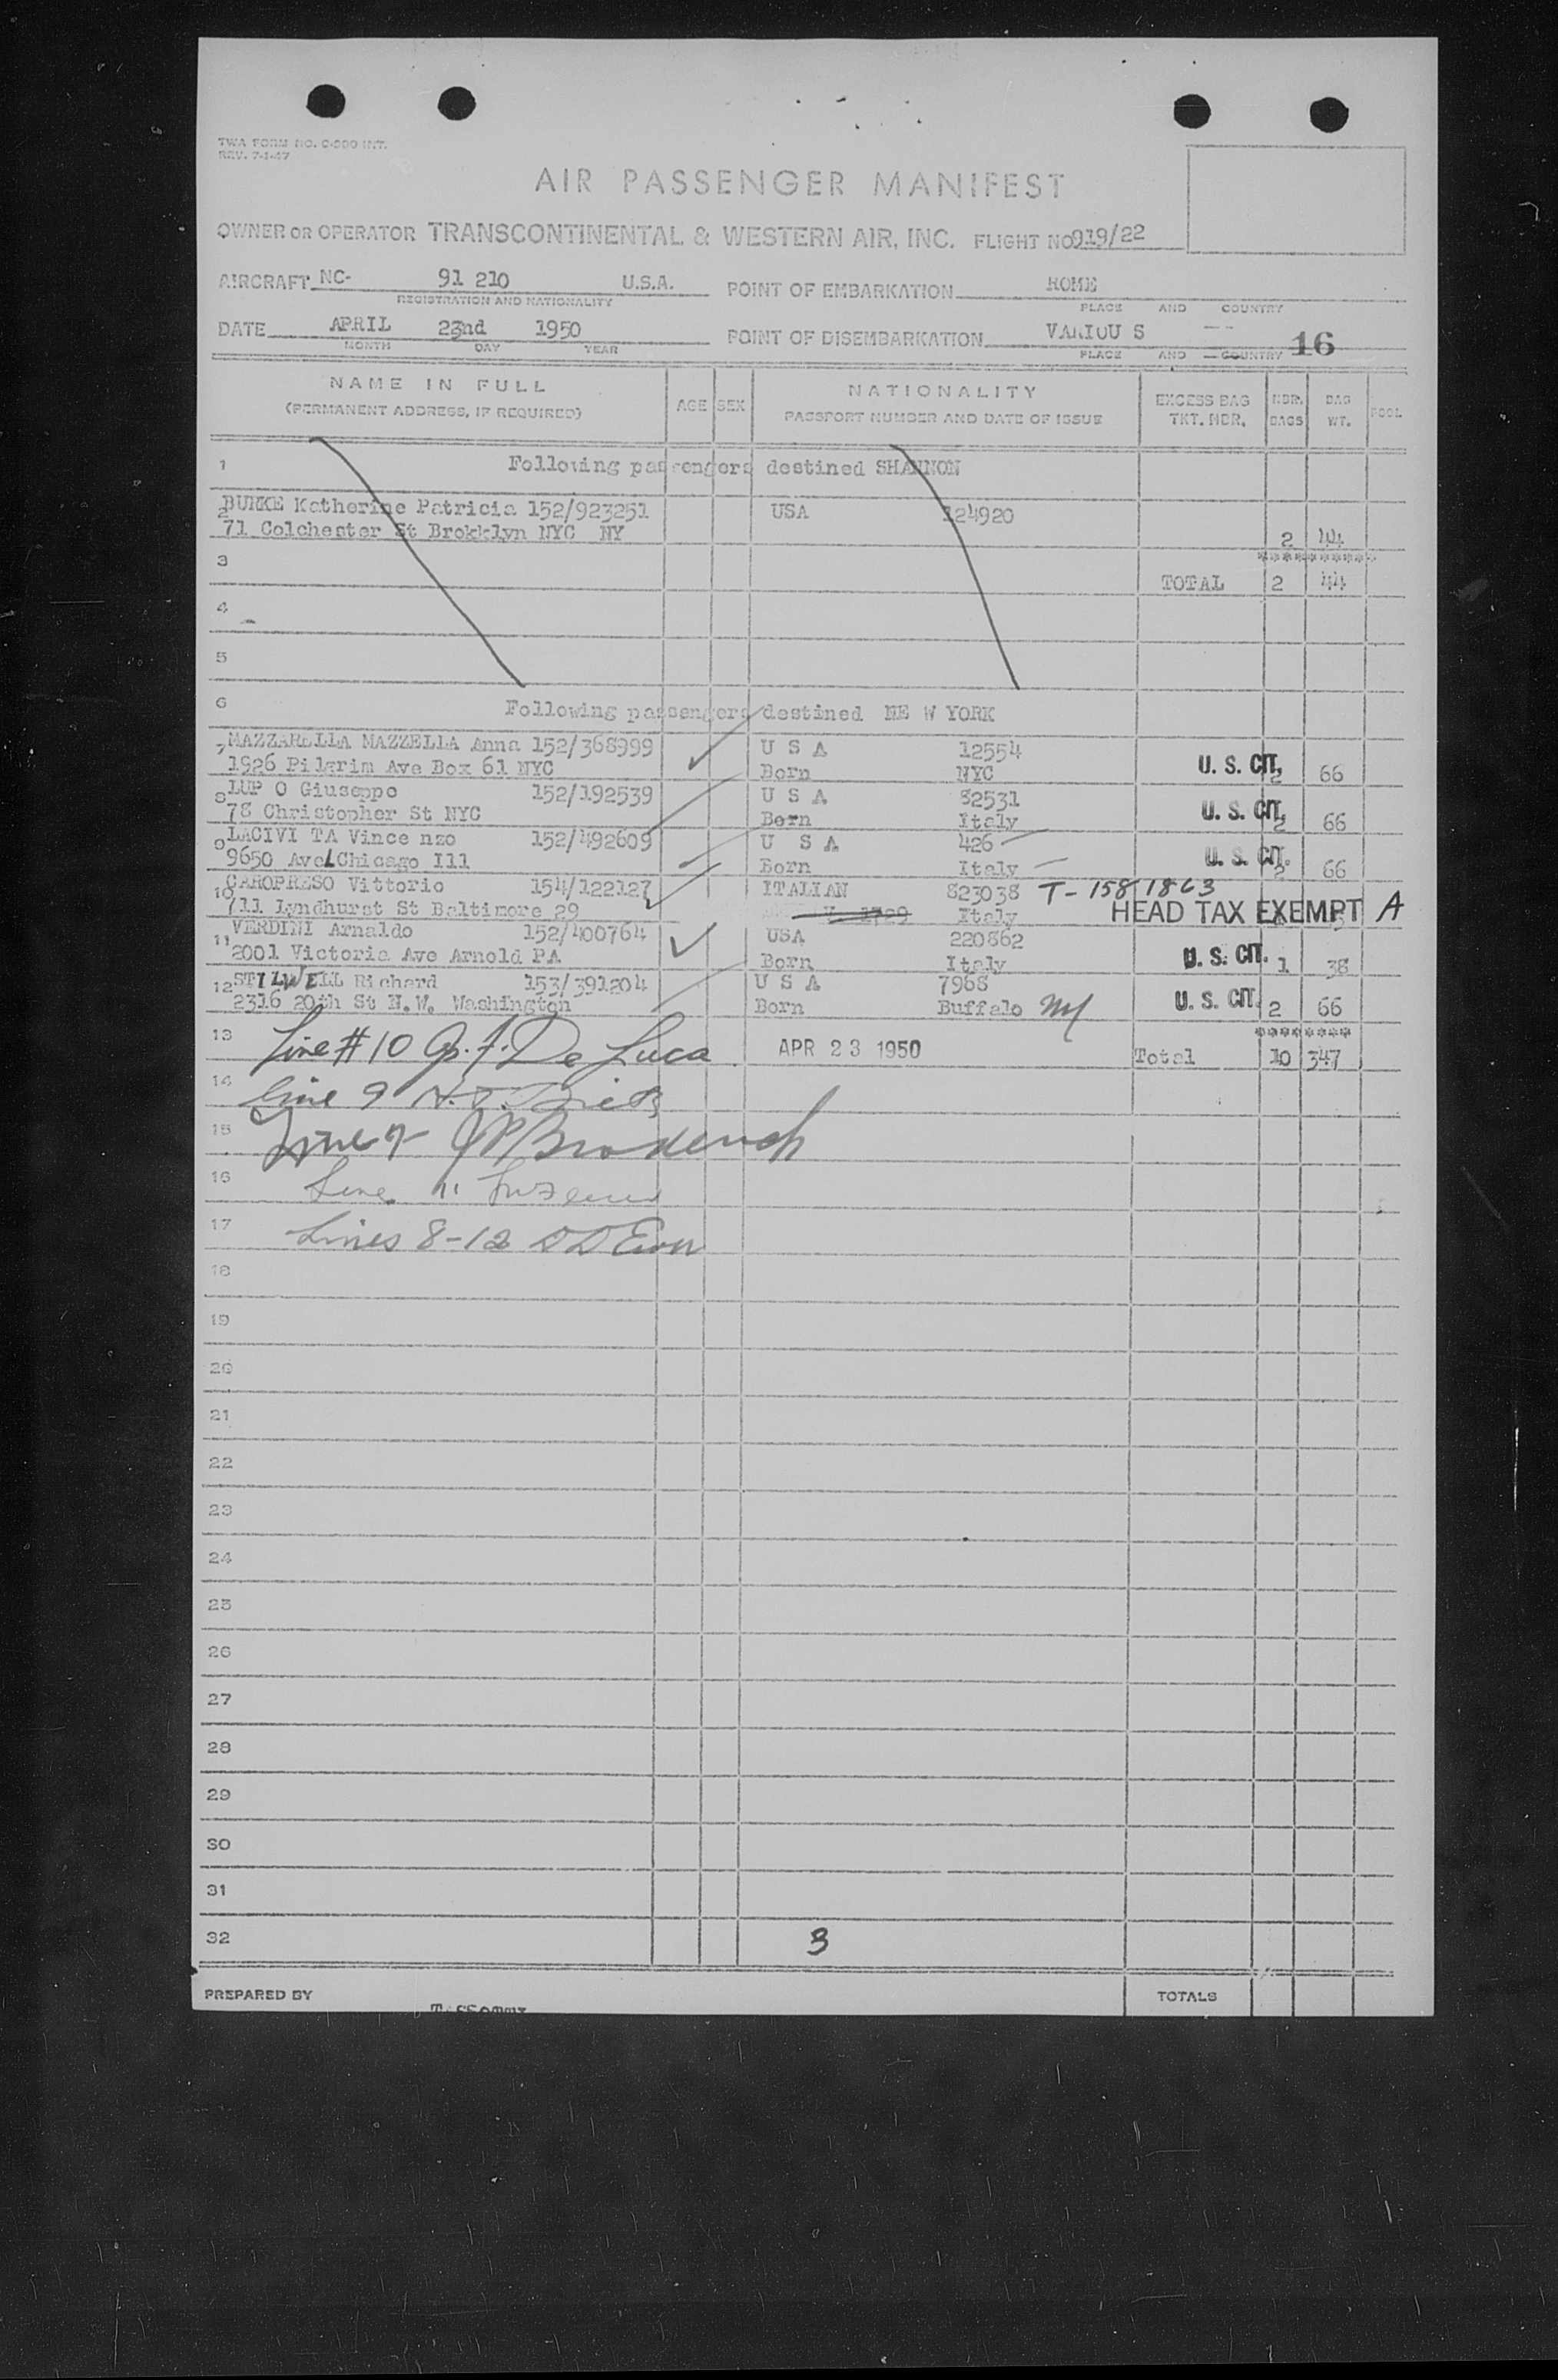 TWA FORM NO. C-900 INT.
REV. 7-1-47
AIR PASSENGER MANIFEST
OWNER OR OPERATOR TRANSCONTINENTAL & WESTERN AIR, INC. FLIGHT NO 919/22
AIRCRAFT NC- 91 210 U.S.A. POINT OF EMBARKATION ROME
REGISTRATION AND NATIONALITY PLACE AND COUNTRY
DATE APRIL 23nd 1950 POINT OF DISEMBARKATION VARIOU S -- 16
MONTH DAY YEAR PLACE AND COUNTRY
NAME IN FULL AGE SEX NATIONALITY EXCESS BAG NBR. BAG POOL
(PERMANENT ADDRESS, IF REQUIRED) PASSPORT NUMBER AND DATE OF ISSUE TKT. NBR. BAGS WT.
1 Following passengers destined SHANNON
2 BURKE Katherine Patricia 152/923251 USA 124920
71 Colchester St Brokklyn NYC NY 2 44
3 *********
TOTAL 2 44
4
5
6 Following passengers destined NE W YORK
7 MAZZARELLA MAZZELLA Anna 152/368999 U S A 12554
1926 Pilgrim Ave Box 61 NYC Born NYC U. S. CIT. 2 66
8 LUP O Giuseppe 152/192539 U S A 82531
78 Christopher St NYC Born Italy U. S. CIT. 2 66
9 LACIVI TA Vince nzo 152/492609 U S A 426
9650 Ave L Chicago Ill Born Italy U. S. CIT. 2 66
10 CAROPRESO Vittorio 154/122127 ITALIAN 823038 T-1581863
711 Lyndhurst St Baltimore 29 Italy HEAD TAX EXEMPT A
11 VERDINI Arnaldo 152/400764 USA 220862
2001 Victoria Ave Arnold PA Born Italy U. S. CIT. 1 38
12 STILWELL Richard 153/391204 U S A 7968
2316 20th St N.W. Washington Born Buffalo NY U. S. CIT. 2 66
********
13 Line #10 G. F. De Luca APR 23 1950 Total 10 347
14 Line 9
15 Line 7
16 Line 11
17 Lines 8-12
18
19
20
21
22
23
24
25
26
27
28
29
30
31
32 3
PREPARED BY TOTALS